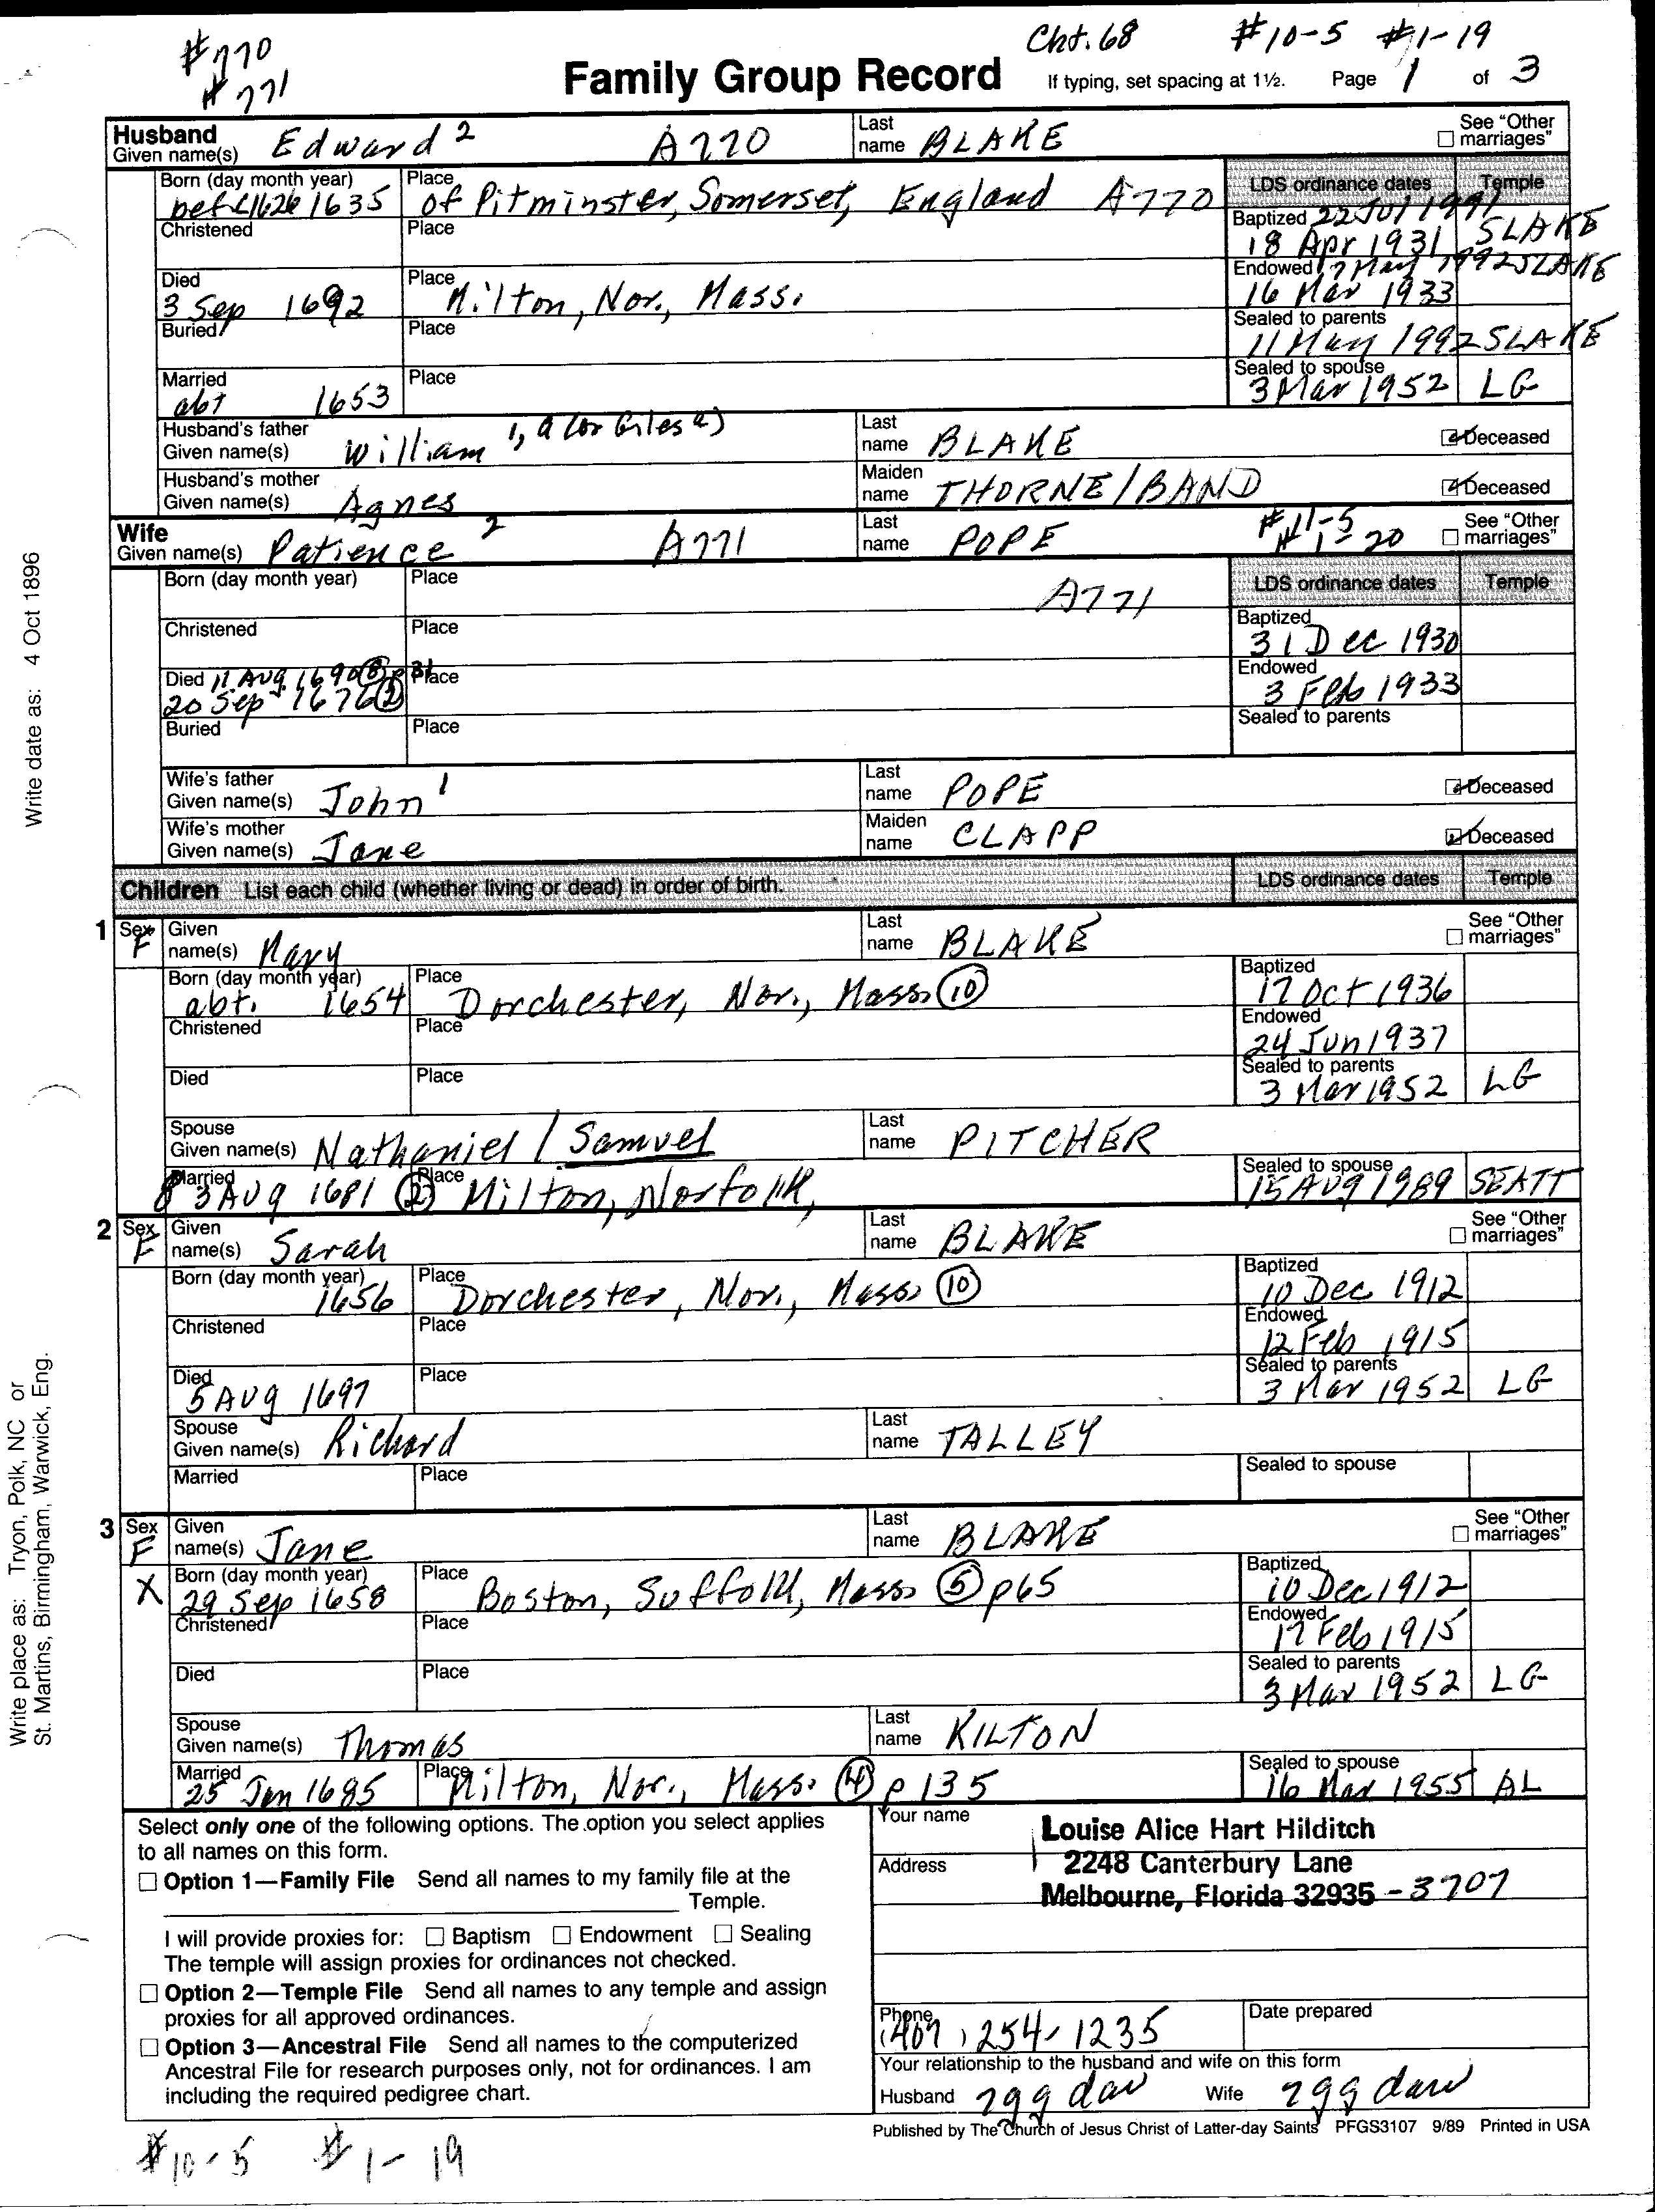 #770 Cht. 68 #10-5 #1-19
# 771 Family Group Record If typing, set spacing at 1½. Page 1 of 3
Husband Given name(s) Edward 2 A770 Last name BLAKE See "Other marriages"
Born (day month year) 1635 Place of Pitminster, Somerset, England A770 LDS ordinance dates Temple
Christened Place Baptized 22 Jul 1991 18 Apr 1931 SLAKE
Died 3 Sep 1692 Place Milton, Nor., Mass. Endowed 1992 SLAKE 16 Mar 1933
Buried Place Sealed to parents 11 May 1992 SLAKE
Married abt 1653 Place Sealed to spouse 3 Mar 1952 LG
Husband's father Given name(s) William 1, a (or Giles a) Last name BLAKE Deceased
Husband's mother Given name(s) Agnes Maiden name THORNE/BAND Deceased
Wife Given name(s) Patience 2 A771 Last name POPE #11-5 # 1-20 See "Other marriages"
Born (day month year) Place A771 LDS ordinance dates Temple
Christened Place Baptized 31 Dec 1930
Died 11 AUG 1690 (8) p 31 20 Sep 1676 (2) Place Endowed 3 Feb 1933
Buried Place Sealed to parents
Wife's father Given name(s) John 1 Last name POPE Deceased
Wife's mother Given name(s) Jane Maiden name CLAPP Deceased
Children List each child (whether living or dead) in order of birth. LDS ordinance dates Temple
1 Sex F Given name(s) Mary Last name BLAKE See "Other marriages"
Born (day month year) abt. 1654 Place Dorchester, Nor., Mass. (10) Baptized 17 Oct 1936
Christened Place Endowed 24 Jun 1937
Died Place Sealed to parents 3 Mar 1952 LG
Spouse Given name(s) Nathaniel / Samuel Last name PITCHER
Married 8 3 AUG 1681 (2) Place Milton, Norfolk, Sealed to spouse 15 AUG 1989 SEATT
2 Sex F Given name(s) Sarah Last name BLAKE See "Other marriages"
Born (day month year) 1656 Place Dorchester, Nor., Mass. (10) Baptized 10 Dec 1912
Christened Place Endowed 12 Feb 1915
Died 5 AUG 1697 Place Sealed to parents 3 Mar 1952 LG
Spouse Given name(s) Richard Last name TALLEY
Married Place Sealed to spouse
3 Sex F Given name(s) Jane Last name BLAKE See "Other marriages"
X Born (day month year) 29 Sep 1658 Place Boston, Suffolk, Mass. (5) p65 Baptized 10 Dec 1912
Christened Place Endowed 17 Feb 1915
Died Place Sealed to parents 3 Mar 1952 LG
Spouse Given name(s) Thomas Last name KILTON
Married 25 Jan 1685 Place Milton, Nor., Mass. (4) p 135 Sealed to spouse 16 Mar 1955 AL
Select only one of the following options. The option you select applies
to all names on this form.
Option 1—Family File Send all names to my family file at the
Temple.
I will provide proxies for: Baptism Endowment Sealing
The temple will assign proxies for ordinances not checked.
Option 2—Temple File Send all names to any temple and assign
proxies for all approved ordinances.
Option 3—Ancestral File Send all names to the computerized
Ancestral File for research purposes only, not for ordinances. I am
including the required pedigree chart.
Your name Louise Alice Hart Hilditch
Address 2248 Canterbury Lane
Melbourne, Florida 32935 - 3707
Phone (407) 254-1235 Date prepared
Your relationship to the husband and wife on this form
Husband 7gg dau Wife 7gg dau
Published by The Church of Jesus Christ of Latter-day Saints PFGS3107 9/89 Printed in USA
#10-5 #1-19
Write date as: 4 Oct 1896
Write place as: Tryon, Polk, NC or
St. Martins, Birmingham, Warwick, Eng.